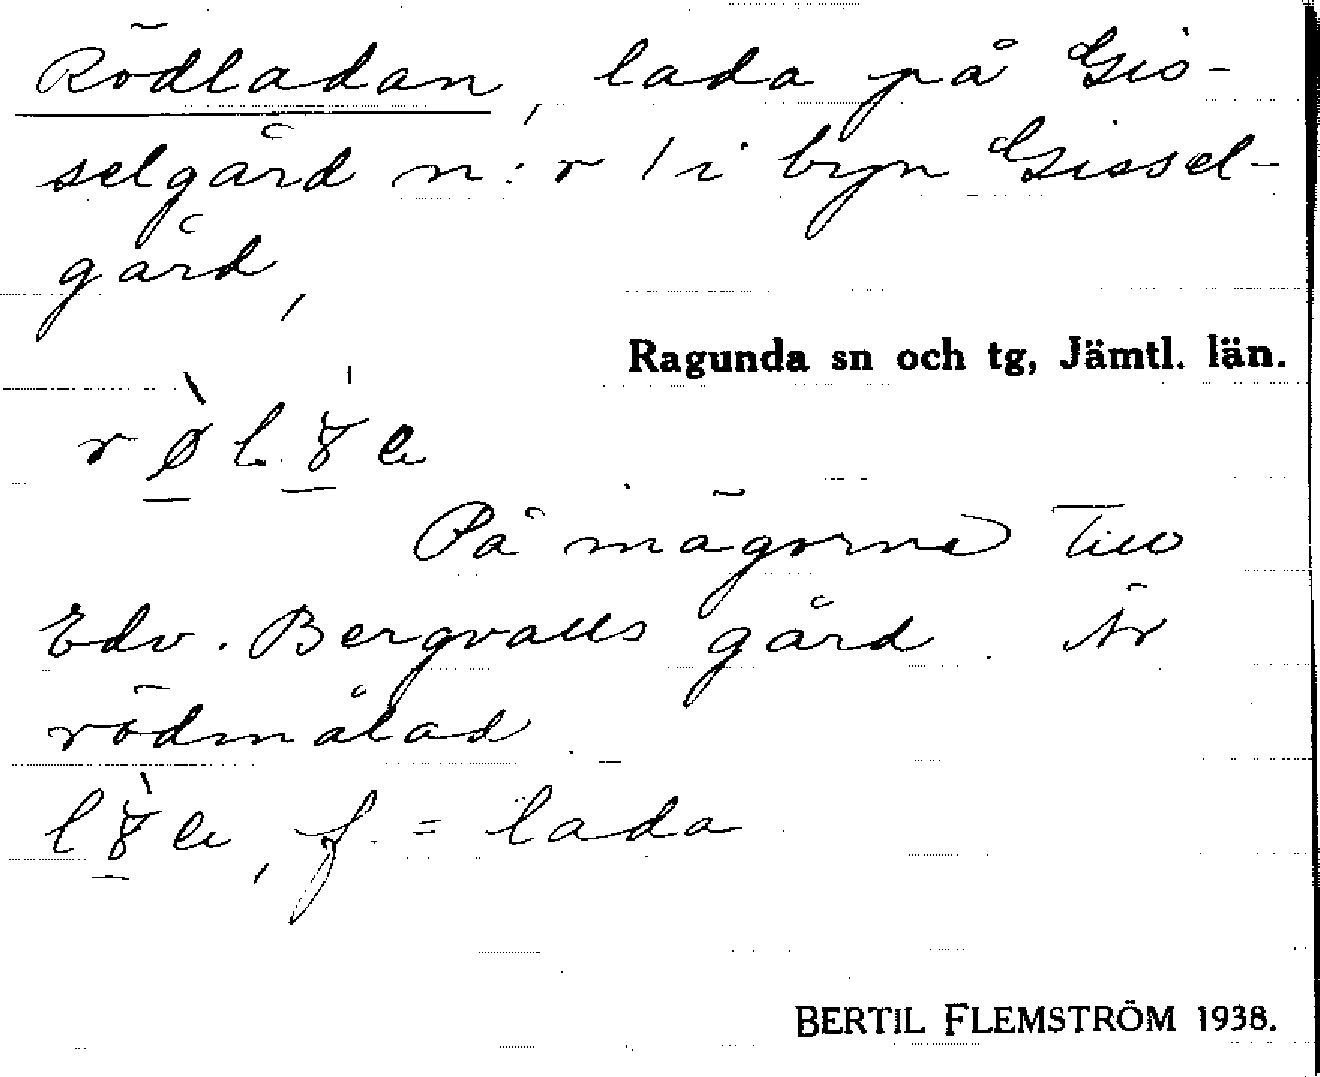 Rödladan, lada på Gis-
selgård n:r 1 i byn Gissel-
gård,
Ragunda sn och tg, Jämtl. län.
På mägorna till
Edv. Bergvalls gård. Är
rödmålad.
f. = lada
BERTIL FLEMSTRÖM 1938.